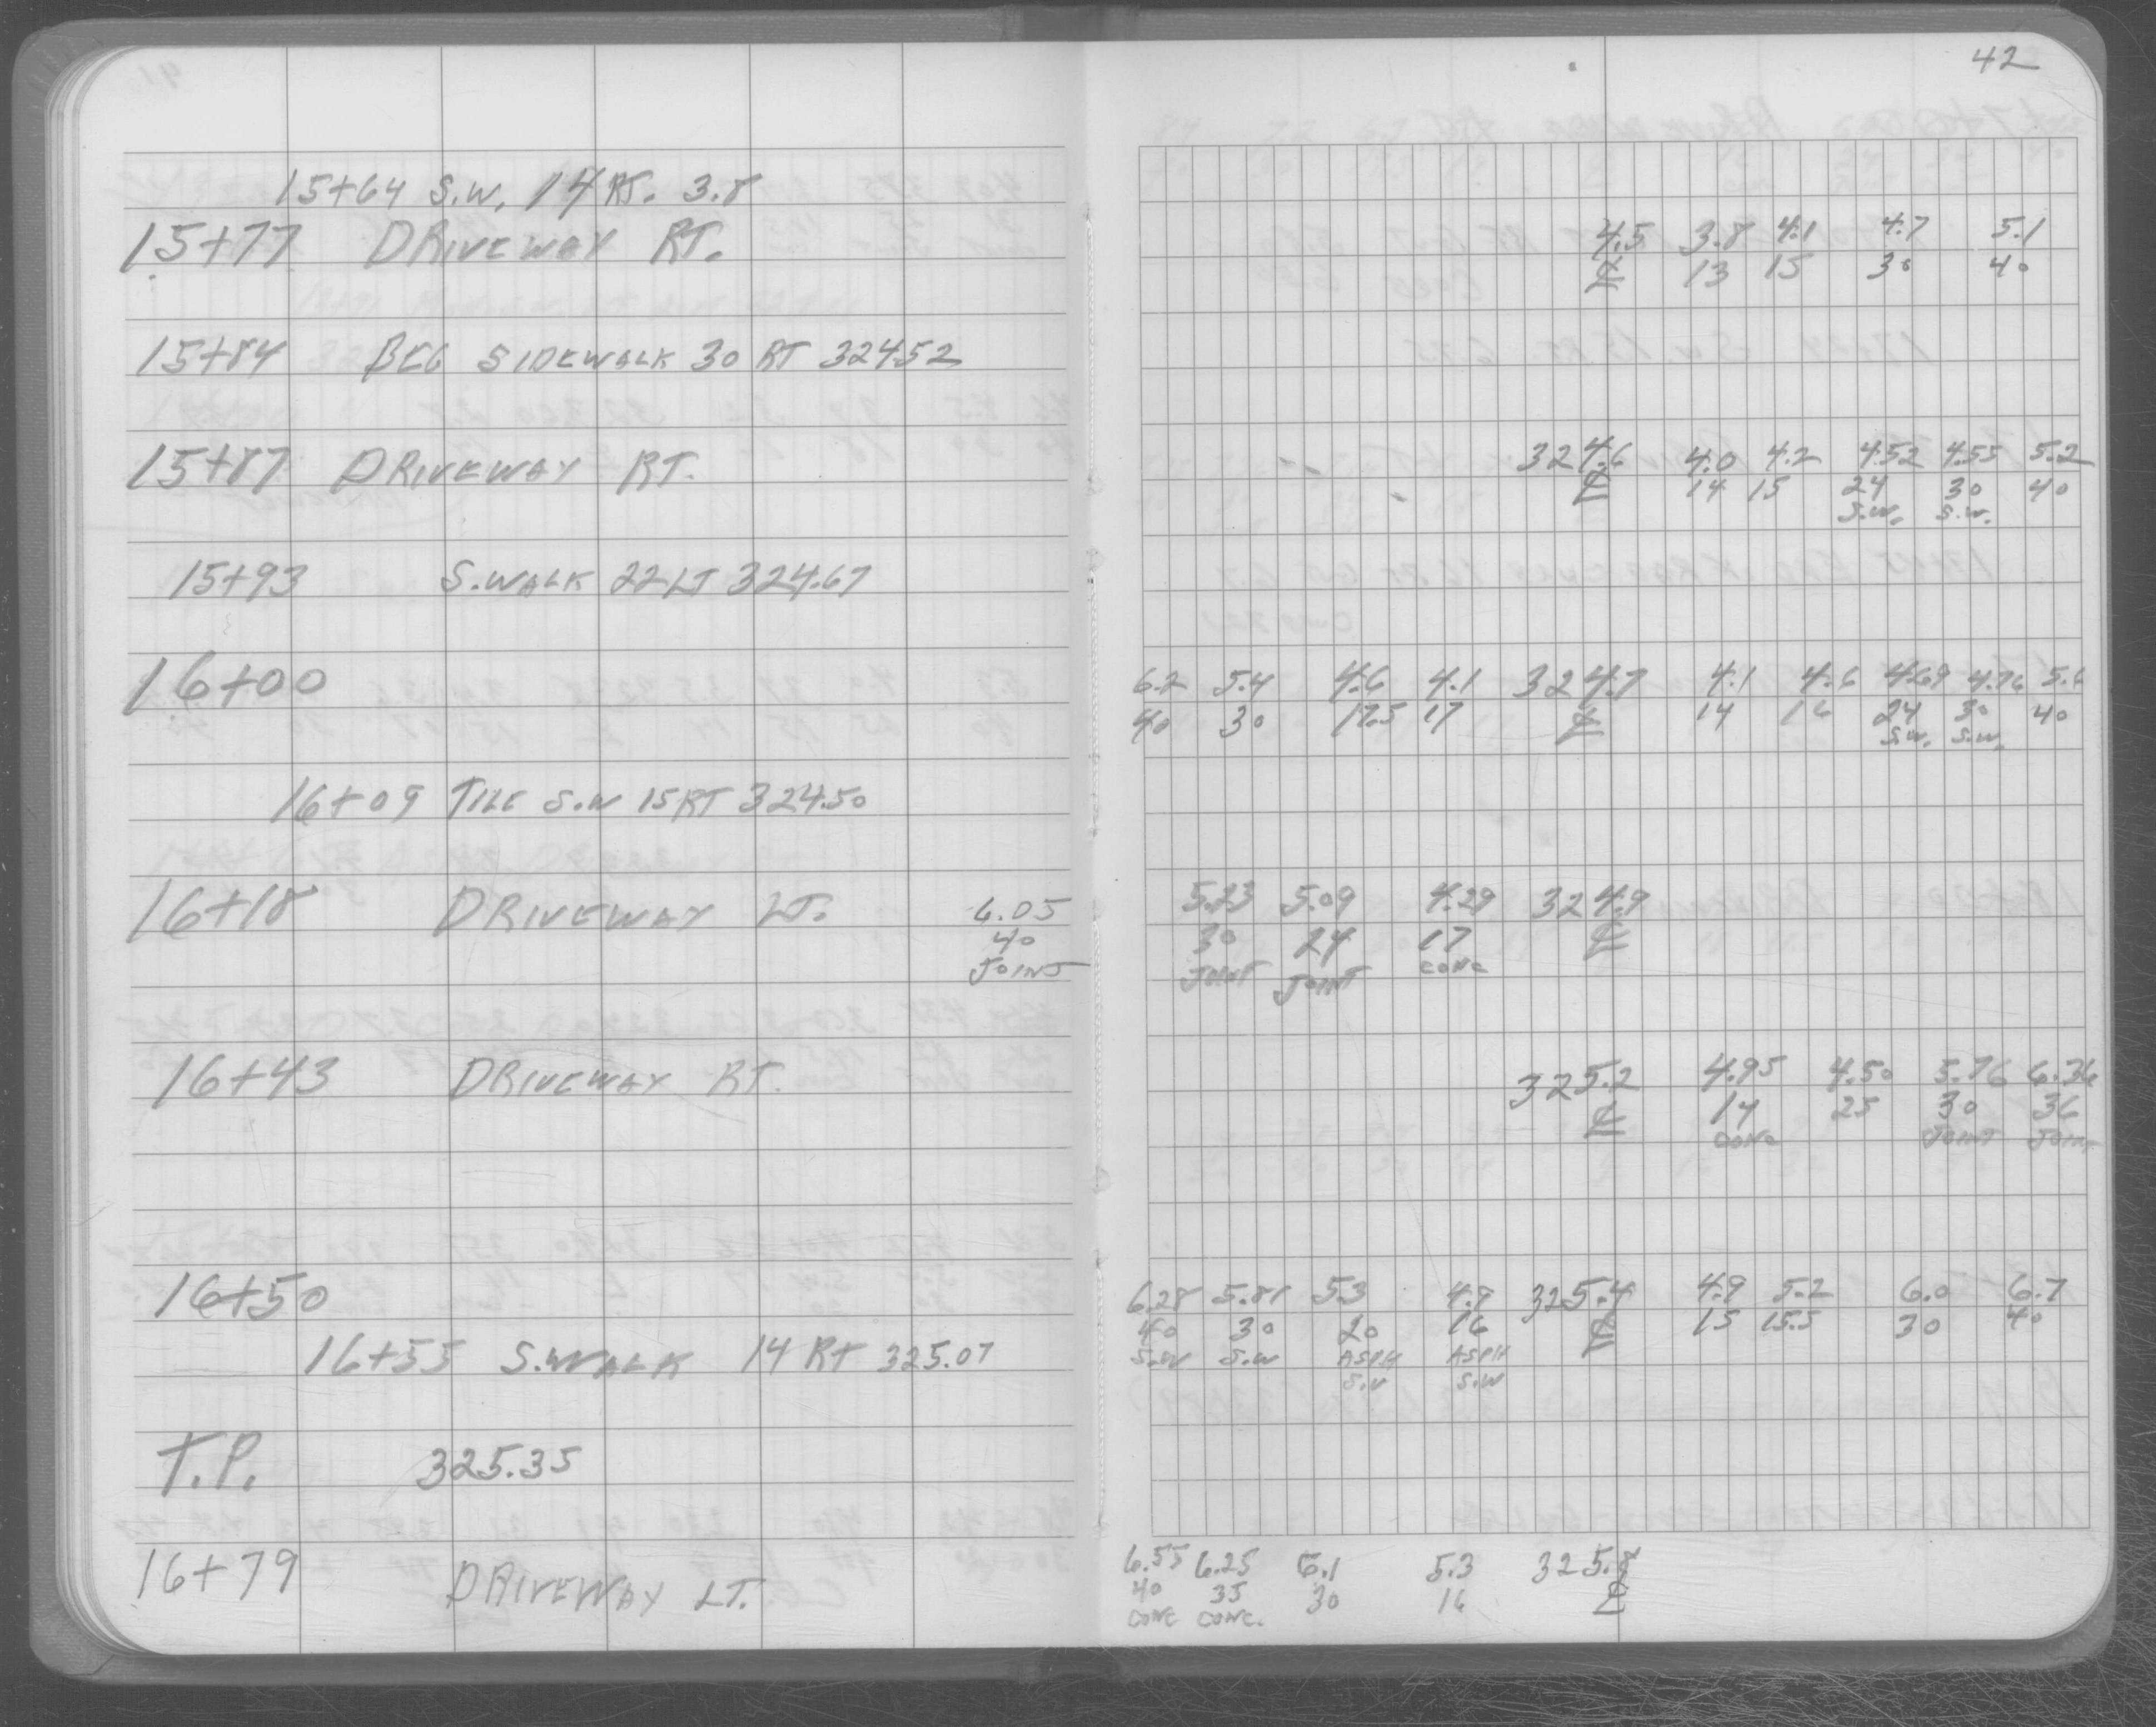 42
15+64 S.W. 14 RT. 3.8
15+77 DRIVEWAY RT.
4.5 3.8 4.1 4.7 5.1
℄ 13 15 30 40
15+84 BEG SIDEWALK 30 RT 324.52
15+87 DRIVEWAY RT.
324.6 4.0 4.2 4.52 4.55 5.2
℄ 14 15 24 30 40
S.W. S.W.
15+93 S.WALK 22 LT 324.67
16+00
6.2 5.4 4.6 4.1 324.7 4.1 4.6 4.69 4.76 5.6
40 30 17.5 17 ℄ 14 16 24 30 40
S.W. S.W.
16+09 TILE S.W 15 RT 324.50
16+18 DRIVEWAY LT.
6.05 5.23 5.09 4.29 324.9
40 30 24 17 ℄
JOINT JOINT JOINT CONC
16+43 DRIVEWAY RT.
325.2 4.95 4.50 5.76 6.36
℄ 14 25 30 36
CONC JOINT JOINT
16+50
6.28 5.81 5.3 4.9 325.4 4.9 5.2 6.0 6.7
40 30 20 16 ℄ 15 15.5 30 40
S.W S.W ASPH ASPH
S.W S.W
16+55 S.WALK 14 RT 325.07
T.P. 325.35
16+79 DRIVEWAY LT.
6.55 6.25 6.1 5.3 325.8
40 35 30 16 ℄
CONC CONC.